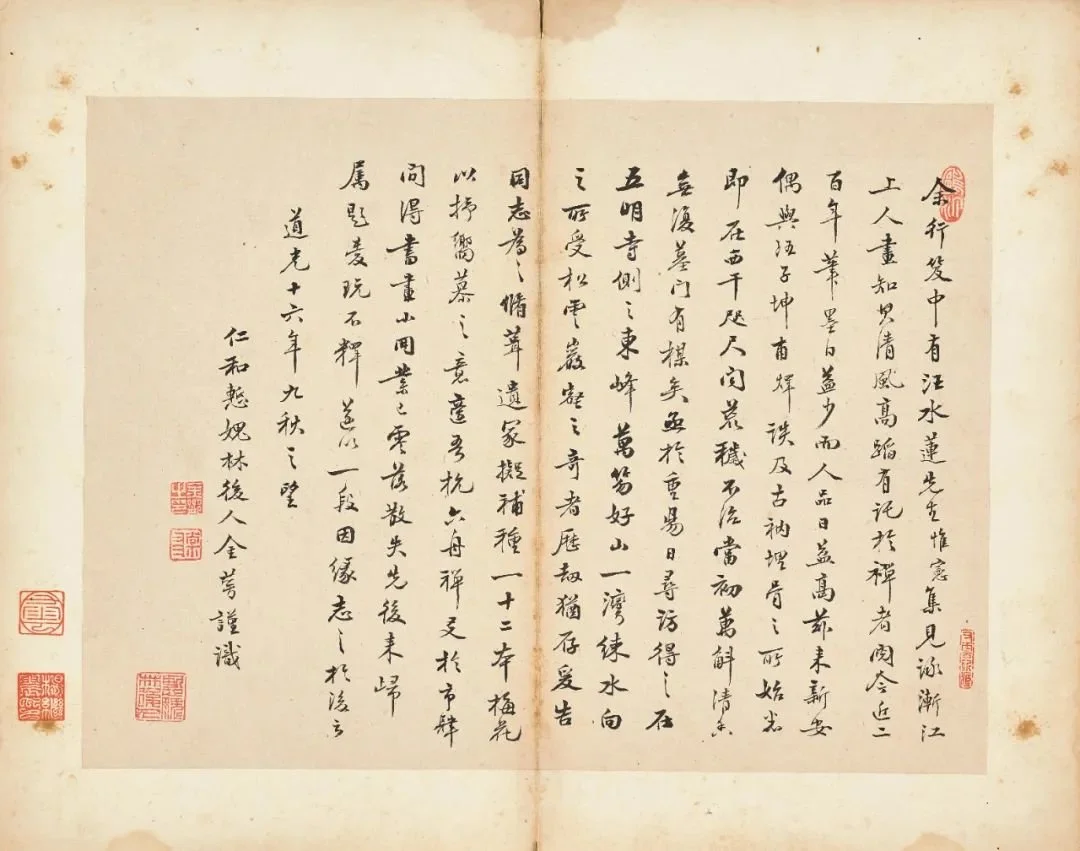 余行笈中有汪水蓮先生惟憲集見詠漸江
上人畫知其清風高蹈有託於禪者閱今近二
百年筆墨日益少而人品日益高茲来新安
偶與子坤甫輝談及古衲埋骨之所始悉
即在西干咫尺间荒穢不治當初萬斛清香
無復墓门有楳矣亟於重昜日尋訪得之在
五明寺側之東峰萬笏好山一灣練水向
之所受松雲巖壑之奇者歷劫猶存爰告
同志為之脩葺遺冢擬補種一十二本梅花
以抒嚮慕之意適吾杭六舟禪友於市肆
间得書畫小冊業已零落散失先後来歸
属題爱玩不釋遂以一段因缘志之於後云
道光十六年九秋之望
仁和愁媿林後人金萼謹識